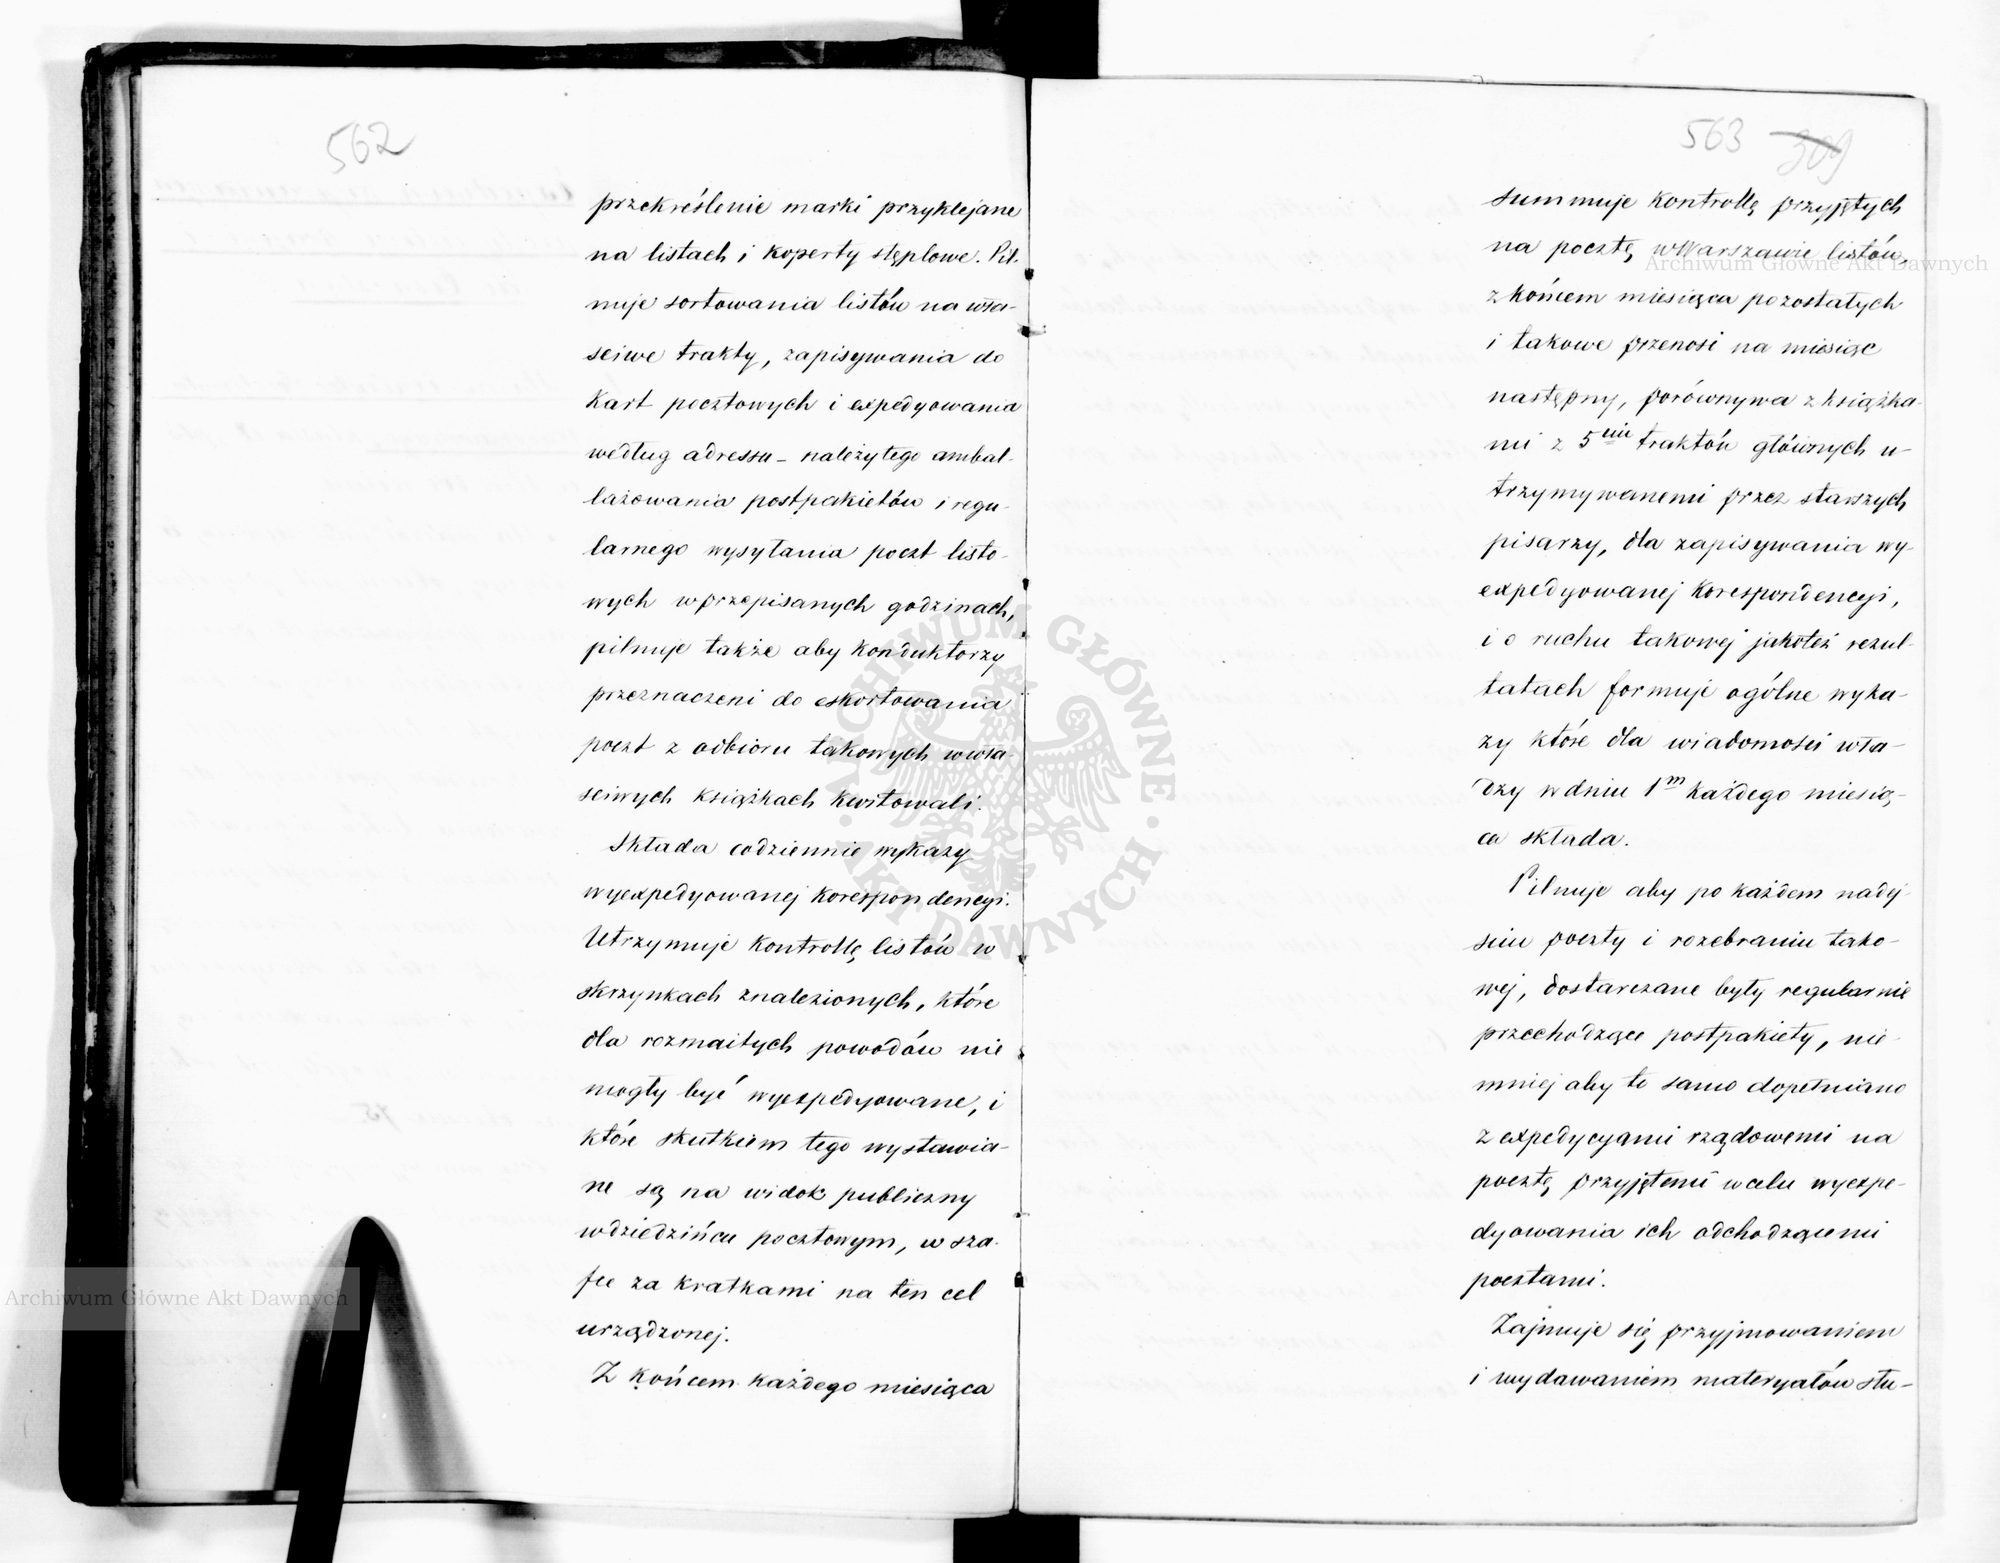 562
przekreślenie marki przyklejane
na listach i koperty stęplowe. Pil-
nuje sortowania listów na wła-
sciwe trakty, zapisywania do
kart pocztowych i expedyowania
według adressu – należytego ambal-
lażowania postpakietów i regu-
larnego wysyłania poczt listo-
wych w przepisanych godzinach,
pilnuje także aby konduktorzy
przeznaczeni do eskortowania
poczt z odbioru takowych w wła-
sciwych książkach kwitowali.
Składa codziennie wykazy
wyexpedyowanej korespondencyi.
Utrzymuje kontrollę listów w
skrzynkach znalezionych, które
dla rozmaitych powodów nie
mogły być wyexpedyowane, i
które skutkiem tego wystawia-
ne są na widok publiczny
w dziedzińcu pocztowym, w sza-
fce za kratkami na ten cel
urządzonej.
Z końcem każdego miesiąca
563 309
summuje kontrollę przyjętych
na pocztę w Warszawie listów,
z końcem miesiąca pozostałych
i takowe przenosi na miesiąc
następny, porównywa z książka-
mi z 5ciu traktów głównych u-
trzymywanemi przez starszych
pisarzy, dla zapisywania wy-
expedyowanej korespondencyi,
i o ruchu takowej jakoteż rezul-
tatach formuje ogólne wyka-
zy które dla wiadomości wła-
dzy w dniu 1m każdego miesią-
ca składa.
Pilnuje aby po każdem nadej-
sciu poczty i rozebraniu tako-
wej, dostarczane były regularnie
przechodzące postpakiety, nie-
mniej aby to samo dopełniano
z expedycyami rządowemi na
pocztę przyjętemi w celu wyexpe-
dyowania ich odchodzącemi
pocztami.
Zajmuje się przyjmowaniem
i wydawaniem materyałów słu-
Archiwum Główne Akt Dawnych
Archiwum Główne Akt Dawnych
ARCHIWUM GŁÓWNE · AKT DAWNYCH ·